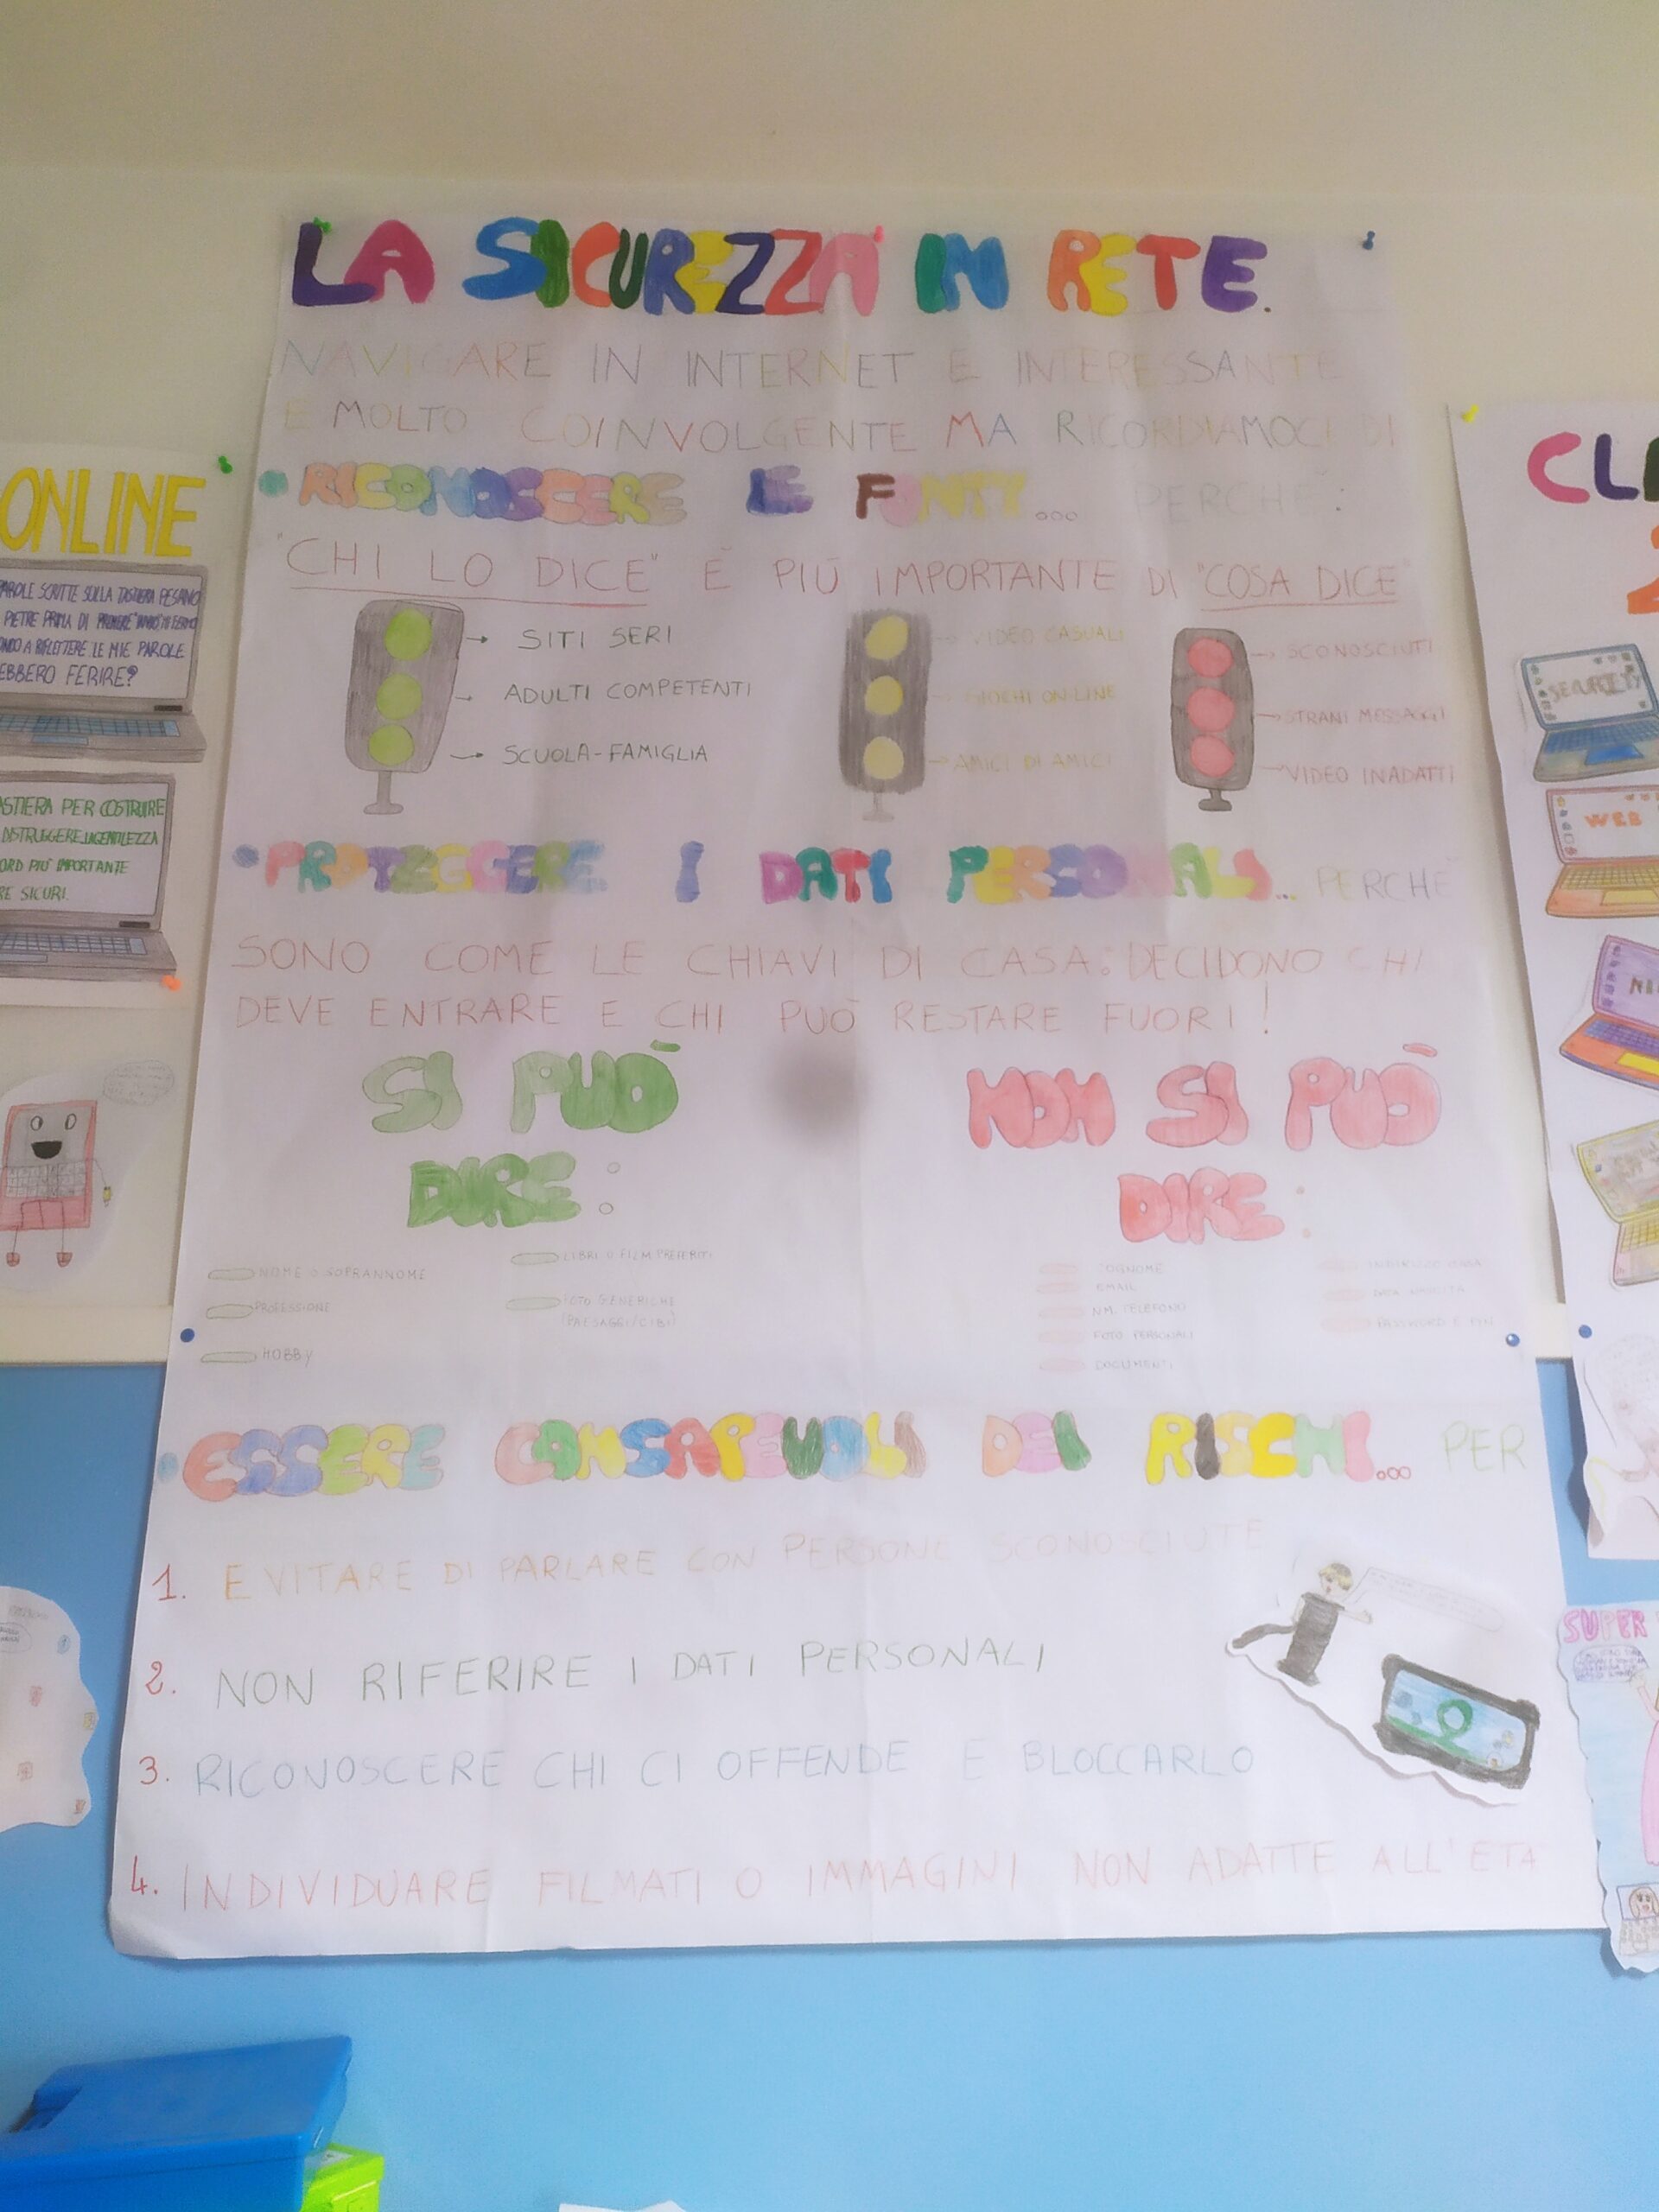 LA SICUREZZA IN RETE.
NAVIGARE IN INTERNET E INTERESSANTE
E MOLTO COINVOLGENTE MA RICORDIAMOCI DI
• RICONOSCERE LE FONTI... PERCHÈ:
"CHI LO DICE" È PIÙ IMPORTANTE DI "COSA DICE"
→ SITI SERI
→ ADULTI COMPETENTI
→ SCUOLA-FAMIGLIA
→ VIDEO CASUALI
→ GIOCHI ON-LINE
→ AMICI DI AMICI
→ SCONOSCIUTI
→ STRANI MESSAGGI
→ VIDEO INADATTI
• PROTEGGERE I DATI PERSONALI... PERCHÈ
SONO COME LE CHIAVI DI CASA: DECIDONO CHI
DEVE ENTRARE E CHI PUÒ RESTARE FUORI!
SI PUÒ
DIRE:
NOME O SOPRANNOME
PROFESSIONE
HOBBY
LIBRI O FILM PREFERITI
FOTO GENERICHE
(PAESAGGI/CIBI)
NON SI PUÒ
DIRE:
COGNOME
EMAIL
NM. TELEFONO
FOTO PERSONALI
DOCUMENTI
INDIRIZZO CASA
DATA NASCITA
PASSWORD E PIN
• ESSERE CONSAPEVOLI DEI RISCHI... PER
1. EVITARE DI PARLARE CON PERSONE SCONOSCIUTE
2. NON RIFERIRE I DATI PERSONALI
3. RICONOSCERE CHI CI OFFENDE E BLOCCARLO
4. INDIVIDUARE FILMATI O IMMAGINI NON ADATTE ALL'ETA
ONLINE
PAROLE SCRITTE SULLA TASTIERA PESANO
PIETRE PRIMA DI PREMERE "INVIO" MI FERMO
A RIFLETTERE LE MIE PAROLE
EBBERO FERIRE?
ASTIERA PER COSTRUIRE
DISTRUGGERE. LA GENTILEZZA
ORD PIÙ IMPORTANTE
RE SICURI.
SECURITY
WEB
SUPER